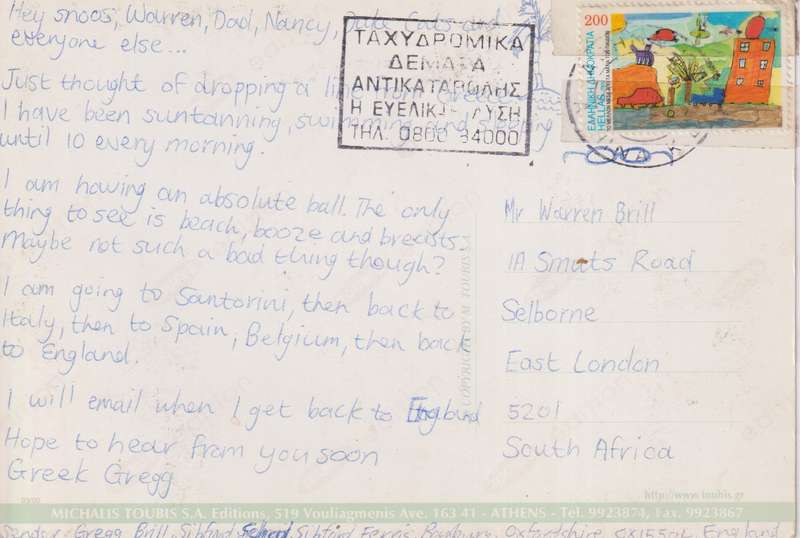 Hey snoos, Warren, Dad, Nancy, Cats and
everyone else...
Just thought of dropping a line from Greece.
I have been suntanning, swimming and sleeping
until 10 every morning.
I am having an absolute ball. The only
thing to see is beach, booze and breasts.
Maybe not such a bad thing though?
I am going to Santorini, then back to
Italy, then to Spain, Belgium, then back
to England.
I will email when I get back to England
Hope to hear from you soon
Greek Gregg
ΤΑΧΥΔΡΟΜΙΚΑ
ΔΕΜΑΤΑ
ΑΝΤΙΚΑΤΑΒΟΛΗΣ
Η ΕΥΕΛΙΚΤΗ ΛΥΣΗ
ΤΗΛ. 0800 34000
200
ΕΛΛΗΝΙΚΗ ΔΗΜΟΚΡΑΤΙΑ
HELLAS
Mr Warren Brill
1A Smuts Road
Selborne
East London
5201
South Africa
COPYRIGHT M. TOUBIS S.A.
http://www.toubis.gr
MICHALIS TOUBIS S.A. Editions, 519 Vouliagmenis Ave. 163 41 - ATHENS - Tel. 9923874, Fax. 9923867
Sender: Gregg Brill, Sibford School, Sibford Ferris, Banbury, Oxfordshire, England